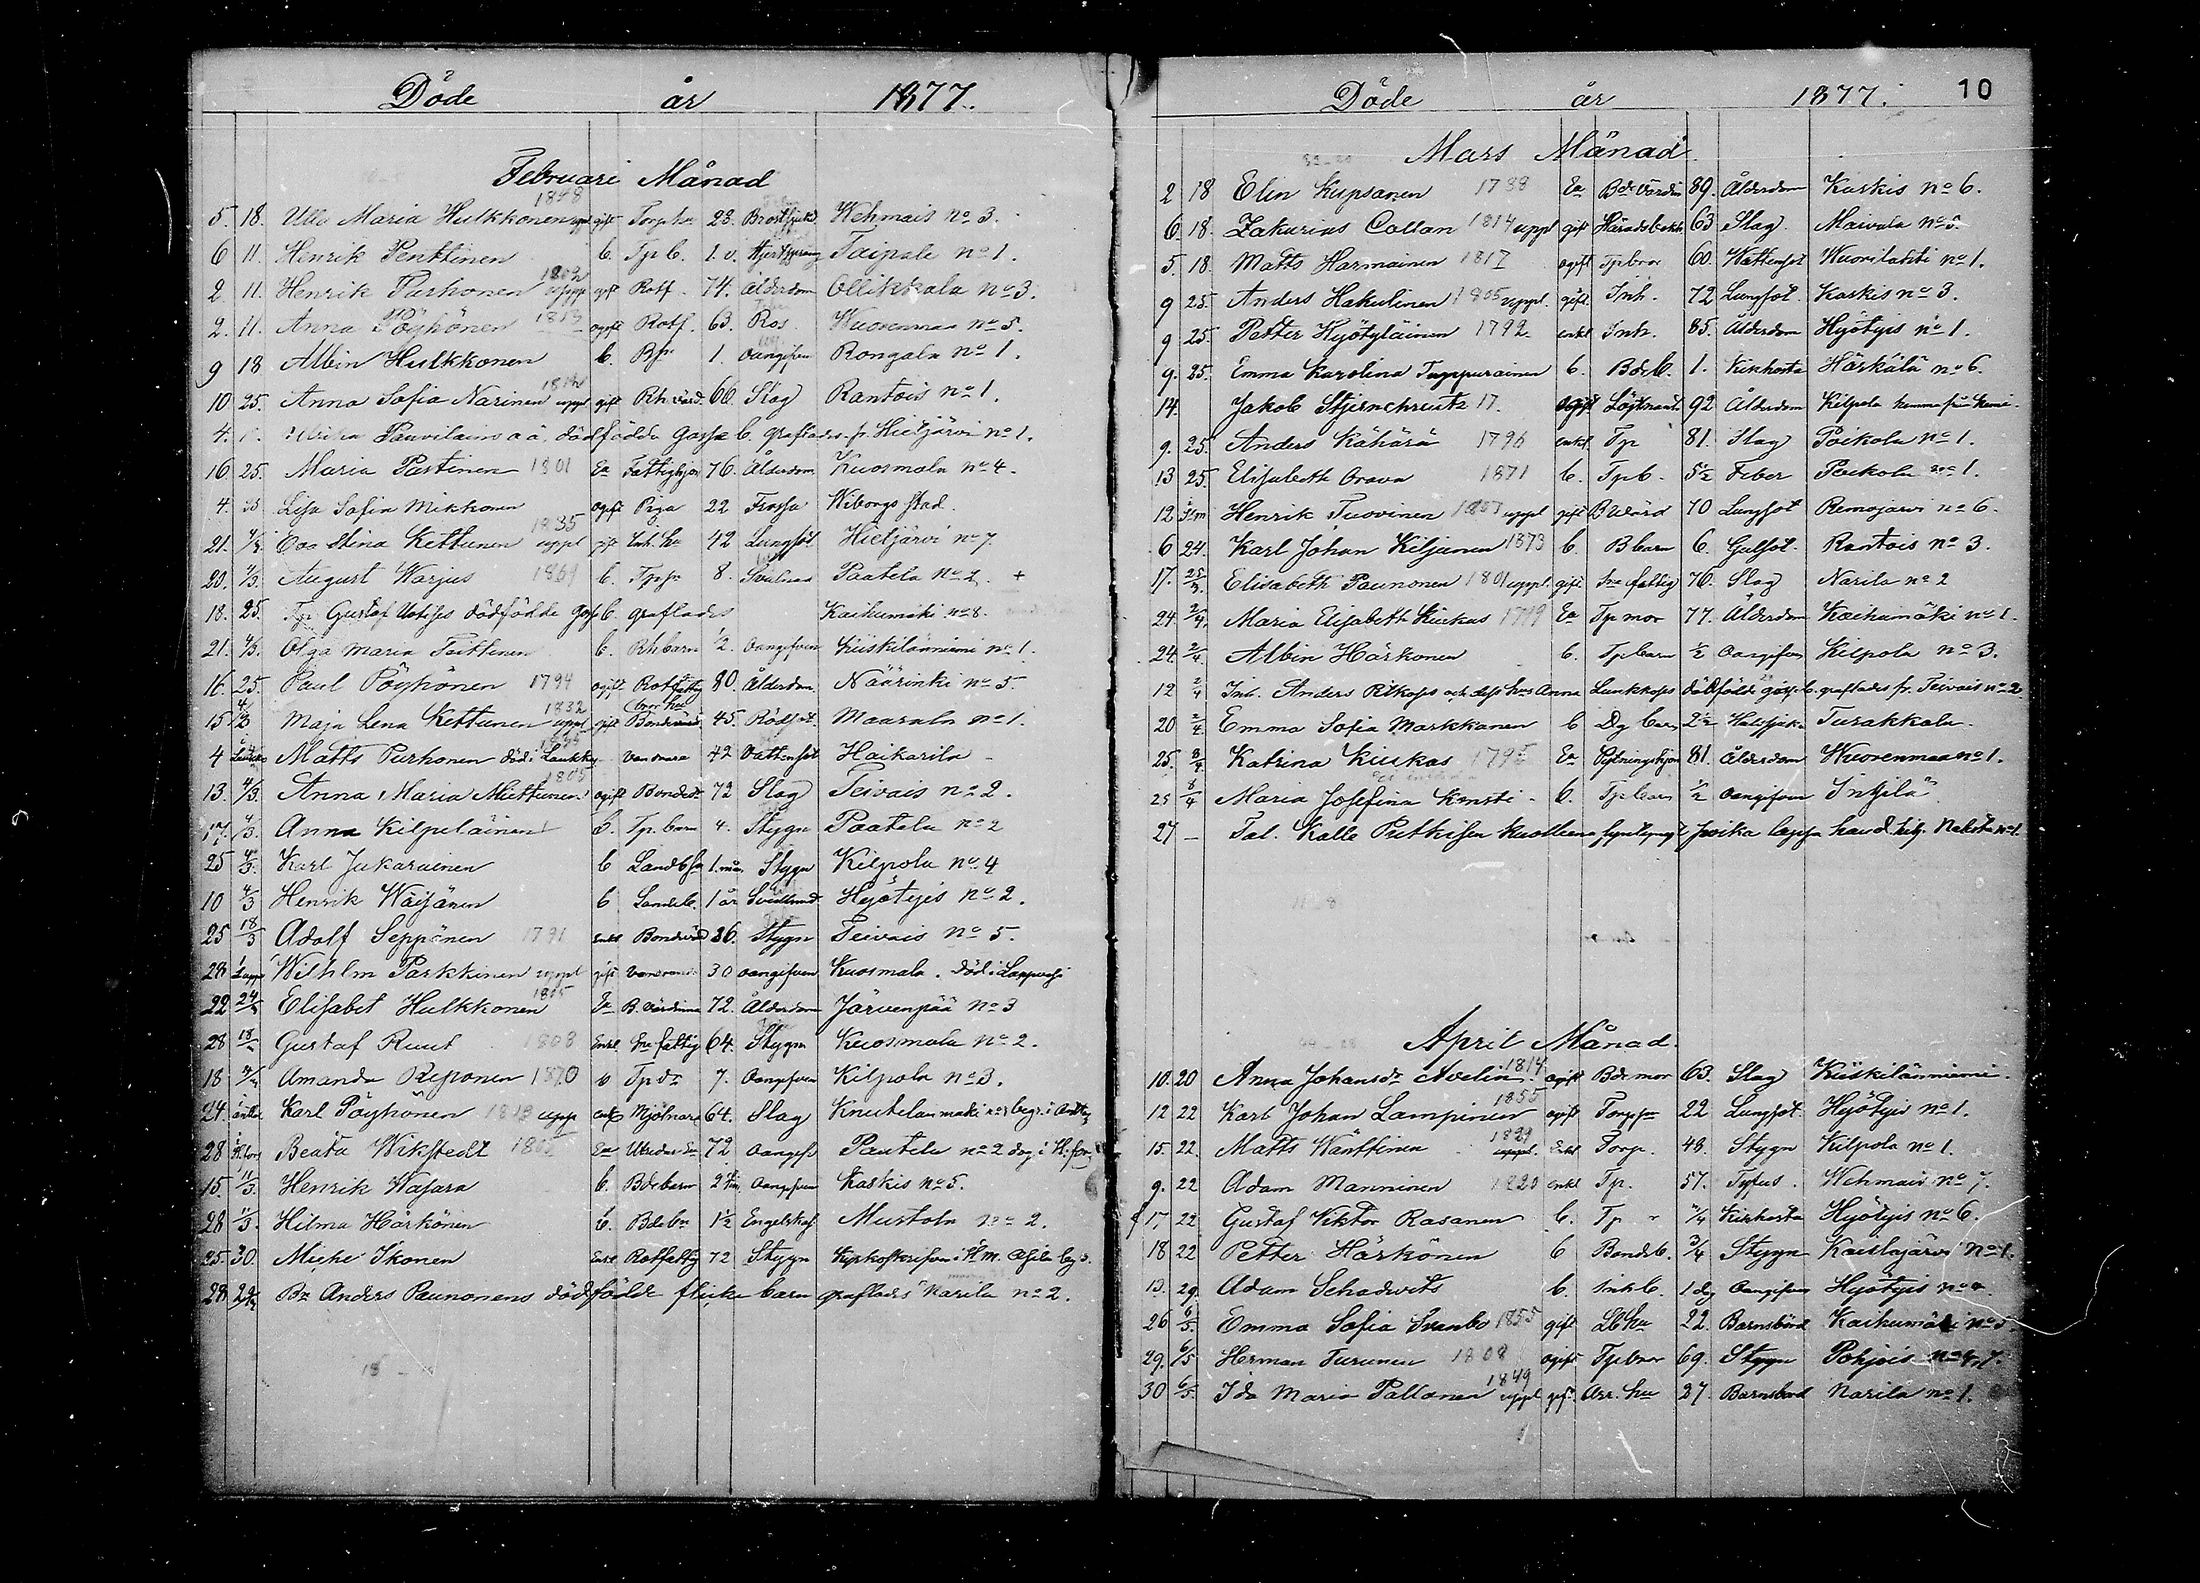 Döde år 1877.
Februari Månad
5. 18. Ulla Maria Hulkkonen 1848 uppl gift Torp. hu 28. Bröstsjukd. Wehmais no 3.
6 11. Henrik Penttinen b. Tp b. 1. v. Taipale no 1.
2. 11. Henrik Purhonen 1802 uppl gift Rotf. 74. Ålderdom Ollikkala no 3.
2. 11. Anna Pöyhönen 1813 ogift Rotf. 63. Ros Wuorenmaa no 5.
9 18 Albin Hulkkonen b. 1. Oangifven Rongala no 1.
10 25. Anna Sofia Narinen 1812 uppl gift Rh. värd. 66. Slag Rantois no 1.
4. Ulrika Paavilains o. ä. dödfödda gosse b. graflades fr. Hietjärvi no 1.
16. 25. Maria Partinen 1801 Ea Fattighjon 76. Ålderdom Kuosmala no 4.
4. 25 Lisa Sofia Mikkonen ogift Piga 22 Frossa Wiborgs stad.
21. 4/3 Eva Stina Kettunen 1835 uppl gift Inh. hu 42 Lungsöt Hietjärvi no 7.
20. 4/3. August Warjus 1869 b. Tp so 8. Paatela no 2. +
18. 25. Tp Gustaf dödfödde gosse b. graflades Kaihumäki no 8.
21. 4/3. Olga Maria Teittinen b. Rh barn 1/2. Oangifven Kiiskilänniemi no 1.
16. 25. Paul Pöyhönen 1794 ogift Rotfattig 80. Ålderdom Näärinki no 5.
15 4/3 Maja Lena Kettunen 1832 uppl gift Bonde bror hu 45. Rödsot. Maarala no 1.
4 Matts Purhonen död i Laukka 42 Vattensot Haikarila
13. 4/3. Anna Maria Miettunen 1805 ogift Bondedr 72 Slag Teivais no 2.
17. 4/3. Anna Kilpeläinen b. Tp. barn 4. Stygn Paatela no 2
25 4/3. Karl Jukarainen b Landb so 1. mån Stygn Kilpola no 4
10 4/3 Henrik Wäisänen b Landb. 1 år Hyötyis no 2.
25 18/3 Adolf Seppänen 1791 Enkl Bondvärd 86. Stygn Teivais no 5.
28 Wilhelm Parkkinen uppl gift 30 oangifven Kuosmala. Död i Lappvesi
22 Elisabet Hulkkonen 1805 Ea B. värdinna 72. Ålderdom Järvenpää no 3
28 18/3 Gustaf Ruut 1808 Enkl fattig 64. Stygn Kuosmala no 2.
18 Amanda Reponen 1870 b Tp dr 7. Oangifven Kilpola no 3.
24. Karl Pöyhönen 1813 uppl enkl Mjölnare 64. Slag Knutelanmäki no 1 begr. i
28 Beata Wikstedt 1805 Ea 72 Oangifv Paatela no 2 dog i H. fors
15. 11/3. Henrik Wafara b. Bde barn Oangifven Karkis no 5.
28 11/3. Hilma Härkönen b. Bde bn 1 1/2 Engelska s. Mustola no 2.
25. 30. Micke Ikonen Enkl Rotfattig 72 Stygn
28 Bn Anders Paunonens dödfödde flicke barn graflades Narila no 2.

Döde år 1877. 10
Mars Månad
2 18 Elin Kupsanen 1788 Ea Bde värdin 89. Ålderdom Karkis no 6.
6. 18. Zakarias Collan 1814 uppl gift Häradsbokh 63 Slag. Maivala no 5.
5. 18. Matts Harmainen 1817 ogift Tp bror 60. Wattensot Wuorilahti no 1.
9 25. Anders Hakulinen 1805 uppl. gift Inh. 72 Lungsot. Karkis no 3.
9 25. Petter Hyötyläinen 1792 enkl Inh. 85. Ålderdom Hyötyis no 1.
9. 25. Emma Karolina Tuppurainen b. Bde b. 1. Kikhosta Härkälä no 6.
14. Jakob Stjernchreutz 17 ogift Löjtnant 92 Ålderdom Kilpola
9. 25. Anders Kähärä 1796 enkl Tp 81. Slag Poikola no 1.
13 25. Elisabeth Orava 1871 b. Tp b. 5 1/2 Feber Poikola no 1.
12 Henrik Tuovinen 1807 uppl gift B Värd 70 Lungsot Remojärvi no 6.
6 24. Karl Johan Kiljunen 1873 b. B barn 6. Gulsot. Rantois no 3.
17. 25/3. Elisabeth Paunonen 1801 uppl. gift fattig 76. Slag Narila no 2
24. 2/4. Maria Elisabeth Kiukas 1799 Ea Tp mor 77. Ålderdom Kaihumäki no 1.
24. 2/4 Albin Härkönen b. Tp barn 1/2 Oangifven Kilpola no 3.
12 2/4 Inh. Anders Pitkoses och dess hus Anna Laukkos dödfödde gosse b. graflades fr. Teivais no 2
20 2/4 Emma Sofia Markkanen b Dg barn 2 1/2 Turakkala.
25. 2/4 Katrina Kiukas 1795 Ea 81. Ålderdom Wuorenmaa no 1.
25 8/4 Maria Josefina b. Tp barn 1/2 Oangifven Inkilä
27 — Tal. Kalle
April Månad.
10. 20 Anna Johansdr Avelin. 1814 ogift Bde mor 63. Slag Kiiskilänniemi.
12 22 Karl Johan Lampinen 1855 ogift Torp so 22 Lungsot. Hyötyis no 1.
15. 22. Matts Wänttinen 1829 uppl. Enkl Torp. 48. Stygn Kilpola no 1.
9. 22 Adam Manninen 1820 enkl Tp. 57. Tyfus. Wehmais no 7.
17 22 Gustaf Viktor Rasanen b. Tp 1/4 Kikhosta Hyötyis no 6.
18 22 Petter Härkönen b Bonde b. 3/4 Stygn Kaislajärvi no 1.
13. 29. Adam Schadewits b. Inh b. 1 dg Oangifven Hyötyis no
26 6/5. Emma Sofia Svanbo 1855 gift Lb hu 22. Barnsbörd Kaihumäki no 5
29. 6/5 Herman Turunen 1808 ogift Tp bror 69. Stygn Pohjois no 7.
30 6/5. Ida Maria Pallonen 1849 uppl gift Arr. hu 27. Barnsbörd Narila no 1.